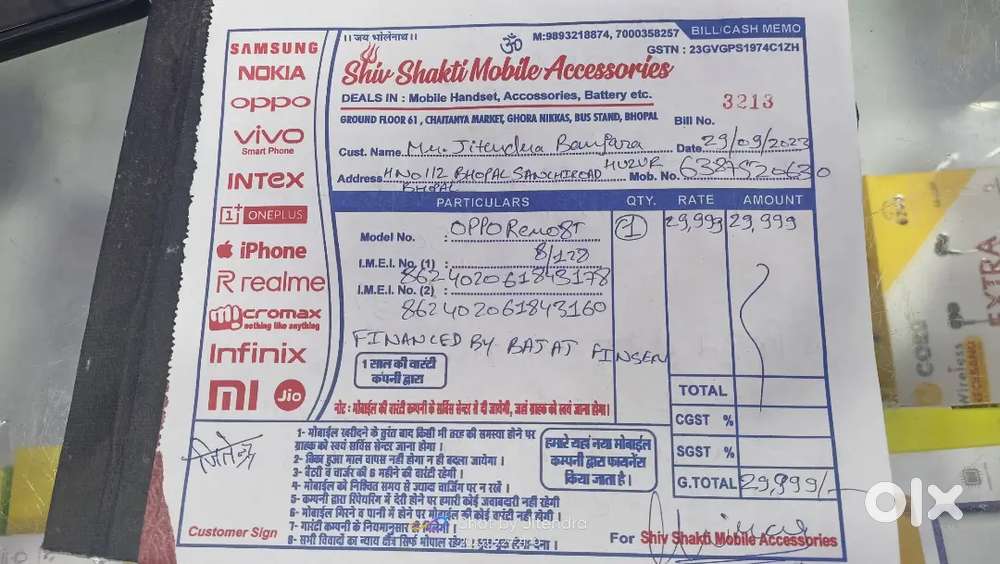 ।। जय भोलेनाथ।।
ॐ
M:9893218874, 7000358257
BILL/CASH MEMO
GSTN : 23GVGPS1974C1ZH
Shiv Shakti Mobile Accessories
DEALS IN : Mobile Handset, Accossories, Battery etc.
GROUND FLOOR 61 , CHAITANYA MARKET, GHORA NIKKAS, BUS STAND, BHOPAL
3213
Bill No.
Cust. Name Mr. Jitendra Banjara Date 29/09/2023
Address HNO 112 BHOPAL SANCHIROAD HUZUR Mob. No. 6387520630
BHOPAL
SAMSUNG
NOKIA
oppo
vivo
Smart Phone
INTEX
1+ ONEPLUS
iPhone
R realme
micromax
nothing like anything
Infinix
MI Jio
PARTICULARS QTY. RATE AMOUNT
Model No. : OPPO Reno8T 1 29,999 29,999
8/128
I.M.E.I. No. (1) :
862402061843178
I.M.E.I. No. (2) :
862402061843160
FINANCED BY BAJAJ FINSERV
1 साल की वारंटी
कंपनी द्वारा
नोट : मोबाईल की वारंटी कम्पनी के सर्विस सेन्टर से दी जायेगी, जहां ग्राहक को स्वयं जाना होगा।
TOTAL
CGST %
SGST %
G.TOTAL 29,999/-
जितेन्द्र
Customer Sign
1- मोबाईल खरीदने के तुरंत बाद किसी भी तरह की समस्या होने पर
ग्राहक को स्वयं सर्विस सेन्टर जाना होगा ।
2- बिका हुआ माल वापस नहीं होगा न ही बदला जायेगा ।
3- बैट्री व चार्जर की 6 महीने की वारंटी रहेगी ।
4- मोबाईल को निश्चित समय से ज्यादा चार्जिंग पर न रखें ।
5- कम्पनी द्वारा रिपेयरिंग में देरी होने पर हमारी कोई जवाबदारी नहीं रहेगी
6- मोबाईल गिरने व पानी में होने पर मोबाईल की कोई वारंटी नहीं होगी ।
7- गारंटी कम्पनी के नियमानुसार से मिलेगी ।
8- सभी विवादों का न्याय क्षेत्र सिर्फ भोपाल रहेगा ।
हमारे यहां नया मोबाईल
कम्पनी द्वारा फायनेंस
किया जाता है ।
For Shiv Shakti Mobile Accessories
Shot by Jitendra
olx
EXTRA
Wireless